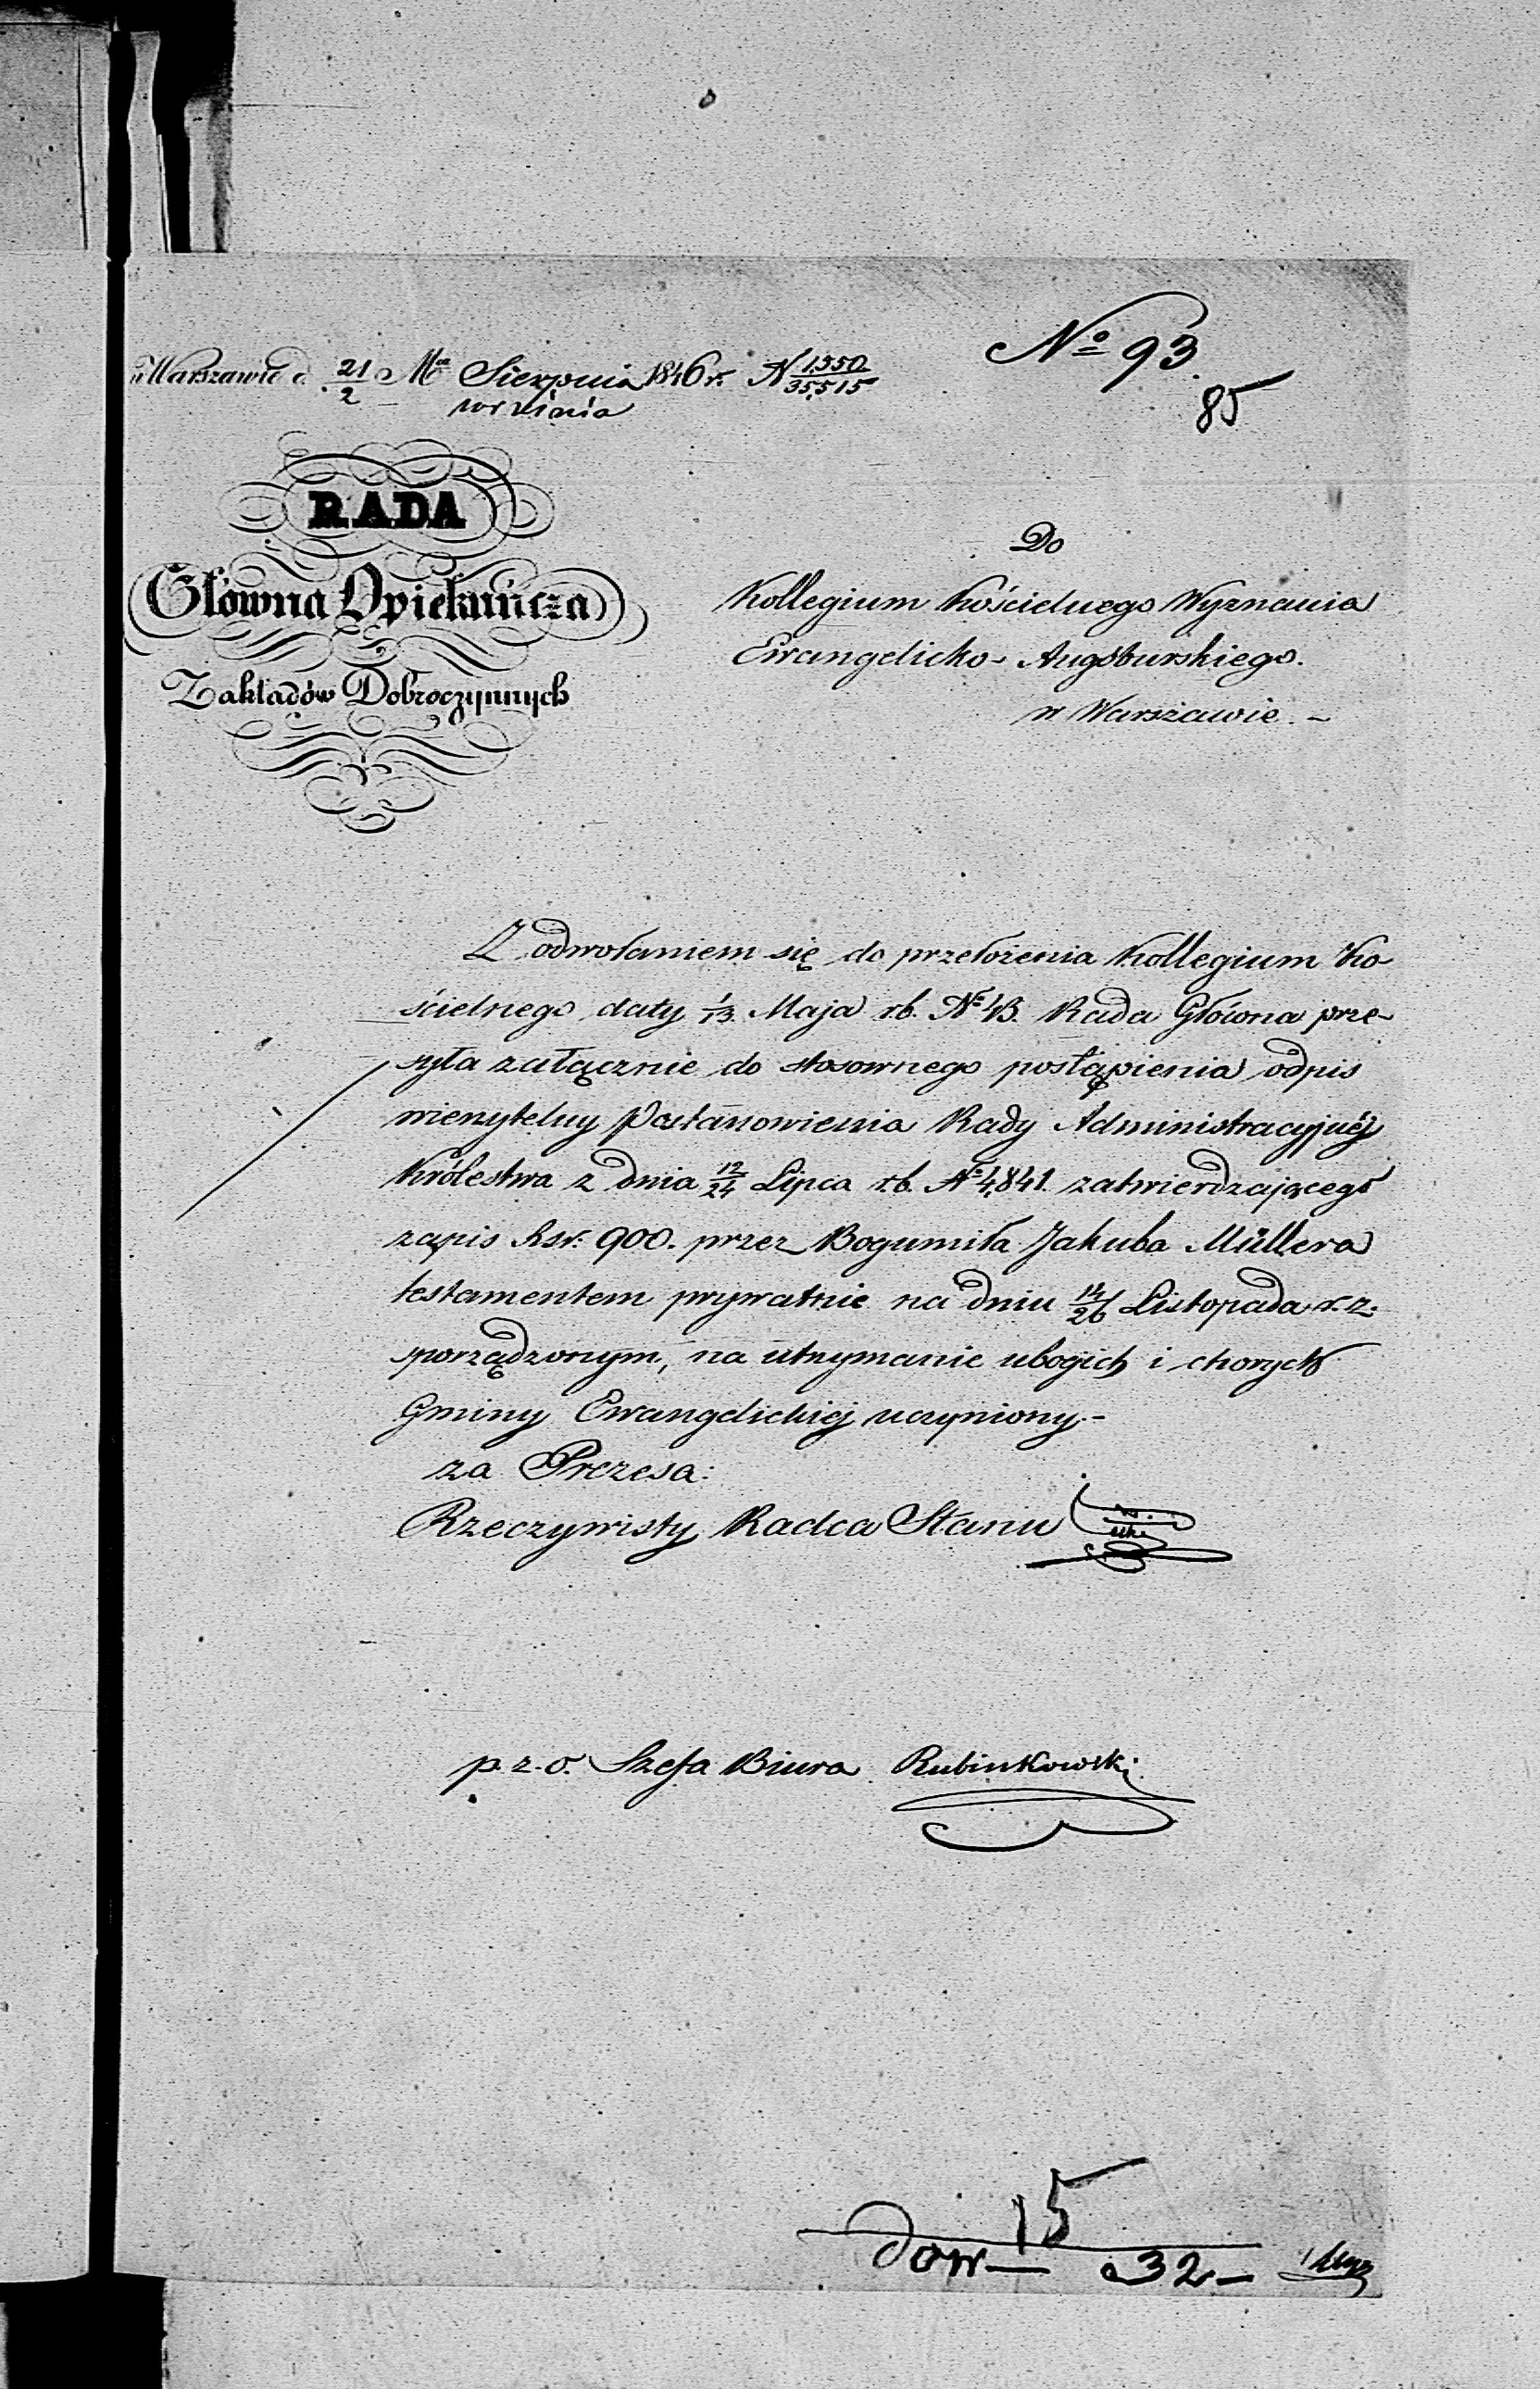 w Warszawie d. 21/2 Mca Sierpnia 1846 r. N 1350/35,515
września
Nº 93.
85
RADA
Główna Opiekuńcza
Zakładów Dobroczynnych
Do
Kollegium Kościelnego Wyznania
Ewangelicko-Augsburskiego.
w Warszawie. -
Z odwołaniem się do przełożenia Kollegium Ko-
ścielnego daty 1/13. Maja r.b. Nº 43. Rada Główna prze-
syła załącznie do stosownego postąpienia odpis
wierzytelny Postanowienia Rady Administracyjnéj
Królestwa z dnia 12/24 Lipca r.b. Nº 4,841. zatwierdzającego
zapis Rsr. 900. przez Bogumiła Jakuba Müllera
testamentem prywatnie na dniu 14/26 Listopada r.z.
sporządzonym, na utrzymanie ubogich i chorych
Gminy Ewangelickiéj uczyniony.-
za Prezesa:
Rzeczywisty Radca Stanu
p.z.o. Szefa Biura Rubinkowski
15
dow- 32-